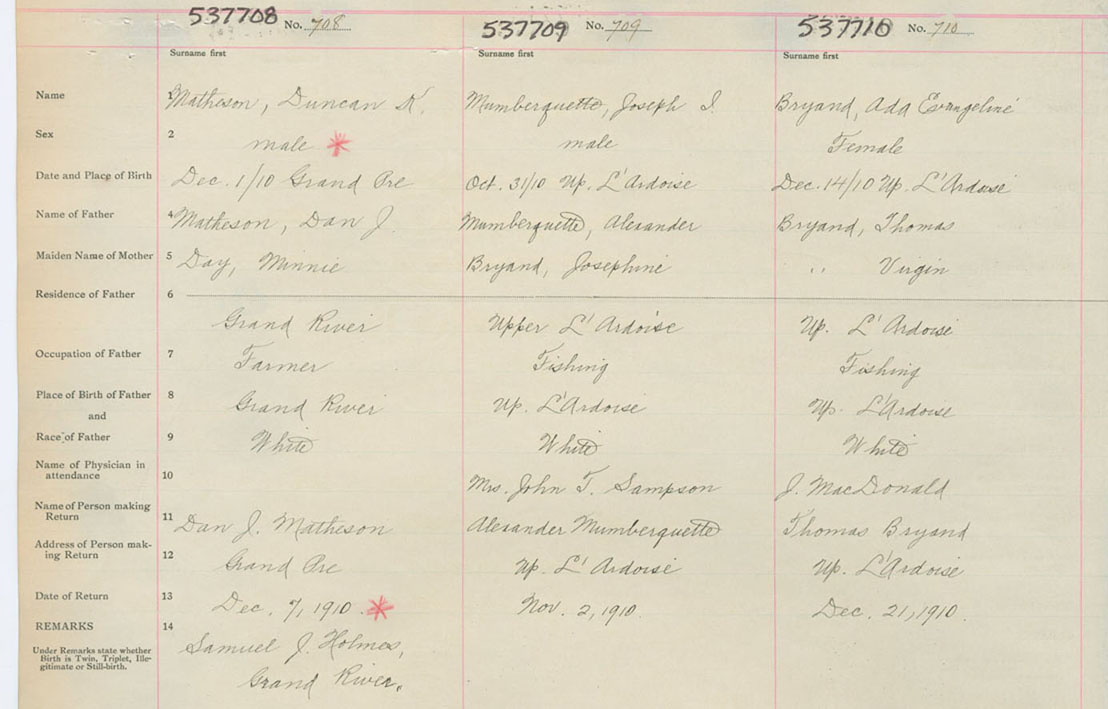 537708 No. 708 537709 No. 709 537710 No. 710
Surname first Surname first Surname first
Name 1 Matheson, Duncan K. Mumberquette, Joseph I. Bryand, Ada Evangeline
Sex 2 male * male Female
Date and Place of Birth Dec. 1/10 Grand Pre Oct. 31/10 Up. L'Ardoise Dec. 14/10 Up. L'Ardoise
Name of Father 4 Matheson, Dan J. Mumberquette, Alexander Bryand, Thomas
Maiden Name of Mother 5 Day, Minnie Bryand, Josephine " Virgin
Residence of Father 6
Grand River Upper L'Ardoise Up. L'Ardoise
Occupation of Father 7 Farmer Fishing Fishing
Place of Birth of Father 8 Grand River Up. L'Ardoise Up. L'Ardoise
and
Race of Father 9 White White White
Name of Physician in
attendance 10 Mrs. John T. Sampson J. MacDonald
Name of Person making
Return 11 Dan J. Matheson Alexander Mumberquette Thomas Bryand
Address of Person mak-
ing Return 12 Grand Pre Up. L'Ardoise Up. L'Ardoise
Date of Return 13 Dec. 7, 1910. * Nov. 2, 1910. Dec. 21, 1910.
REMARKS 14 Samuel J. Holmes,
Under Remarks state whether
Birth is Twin, Triplet, Ille-
gitimate or Still-birth.
Grand River.